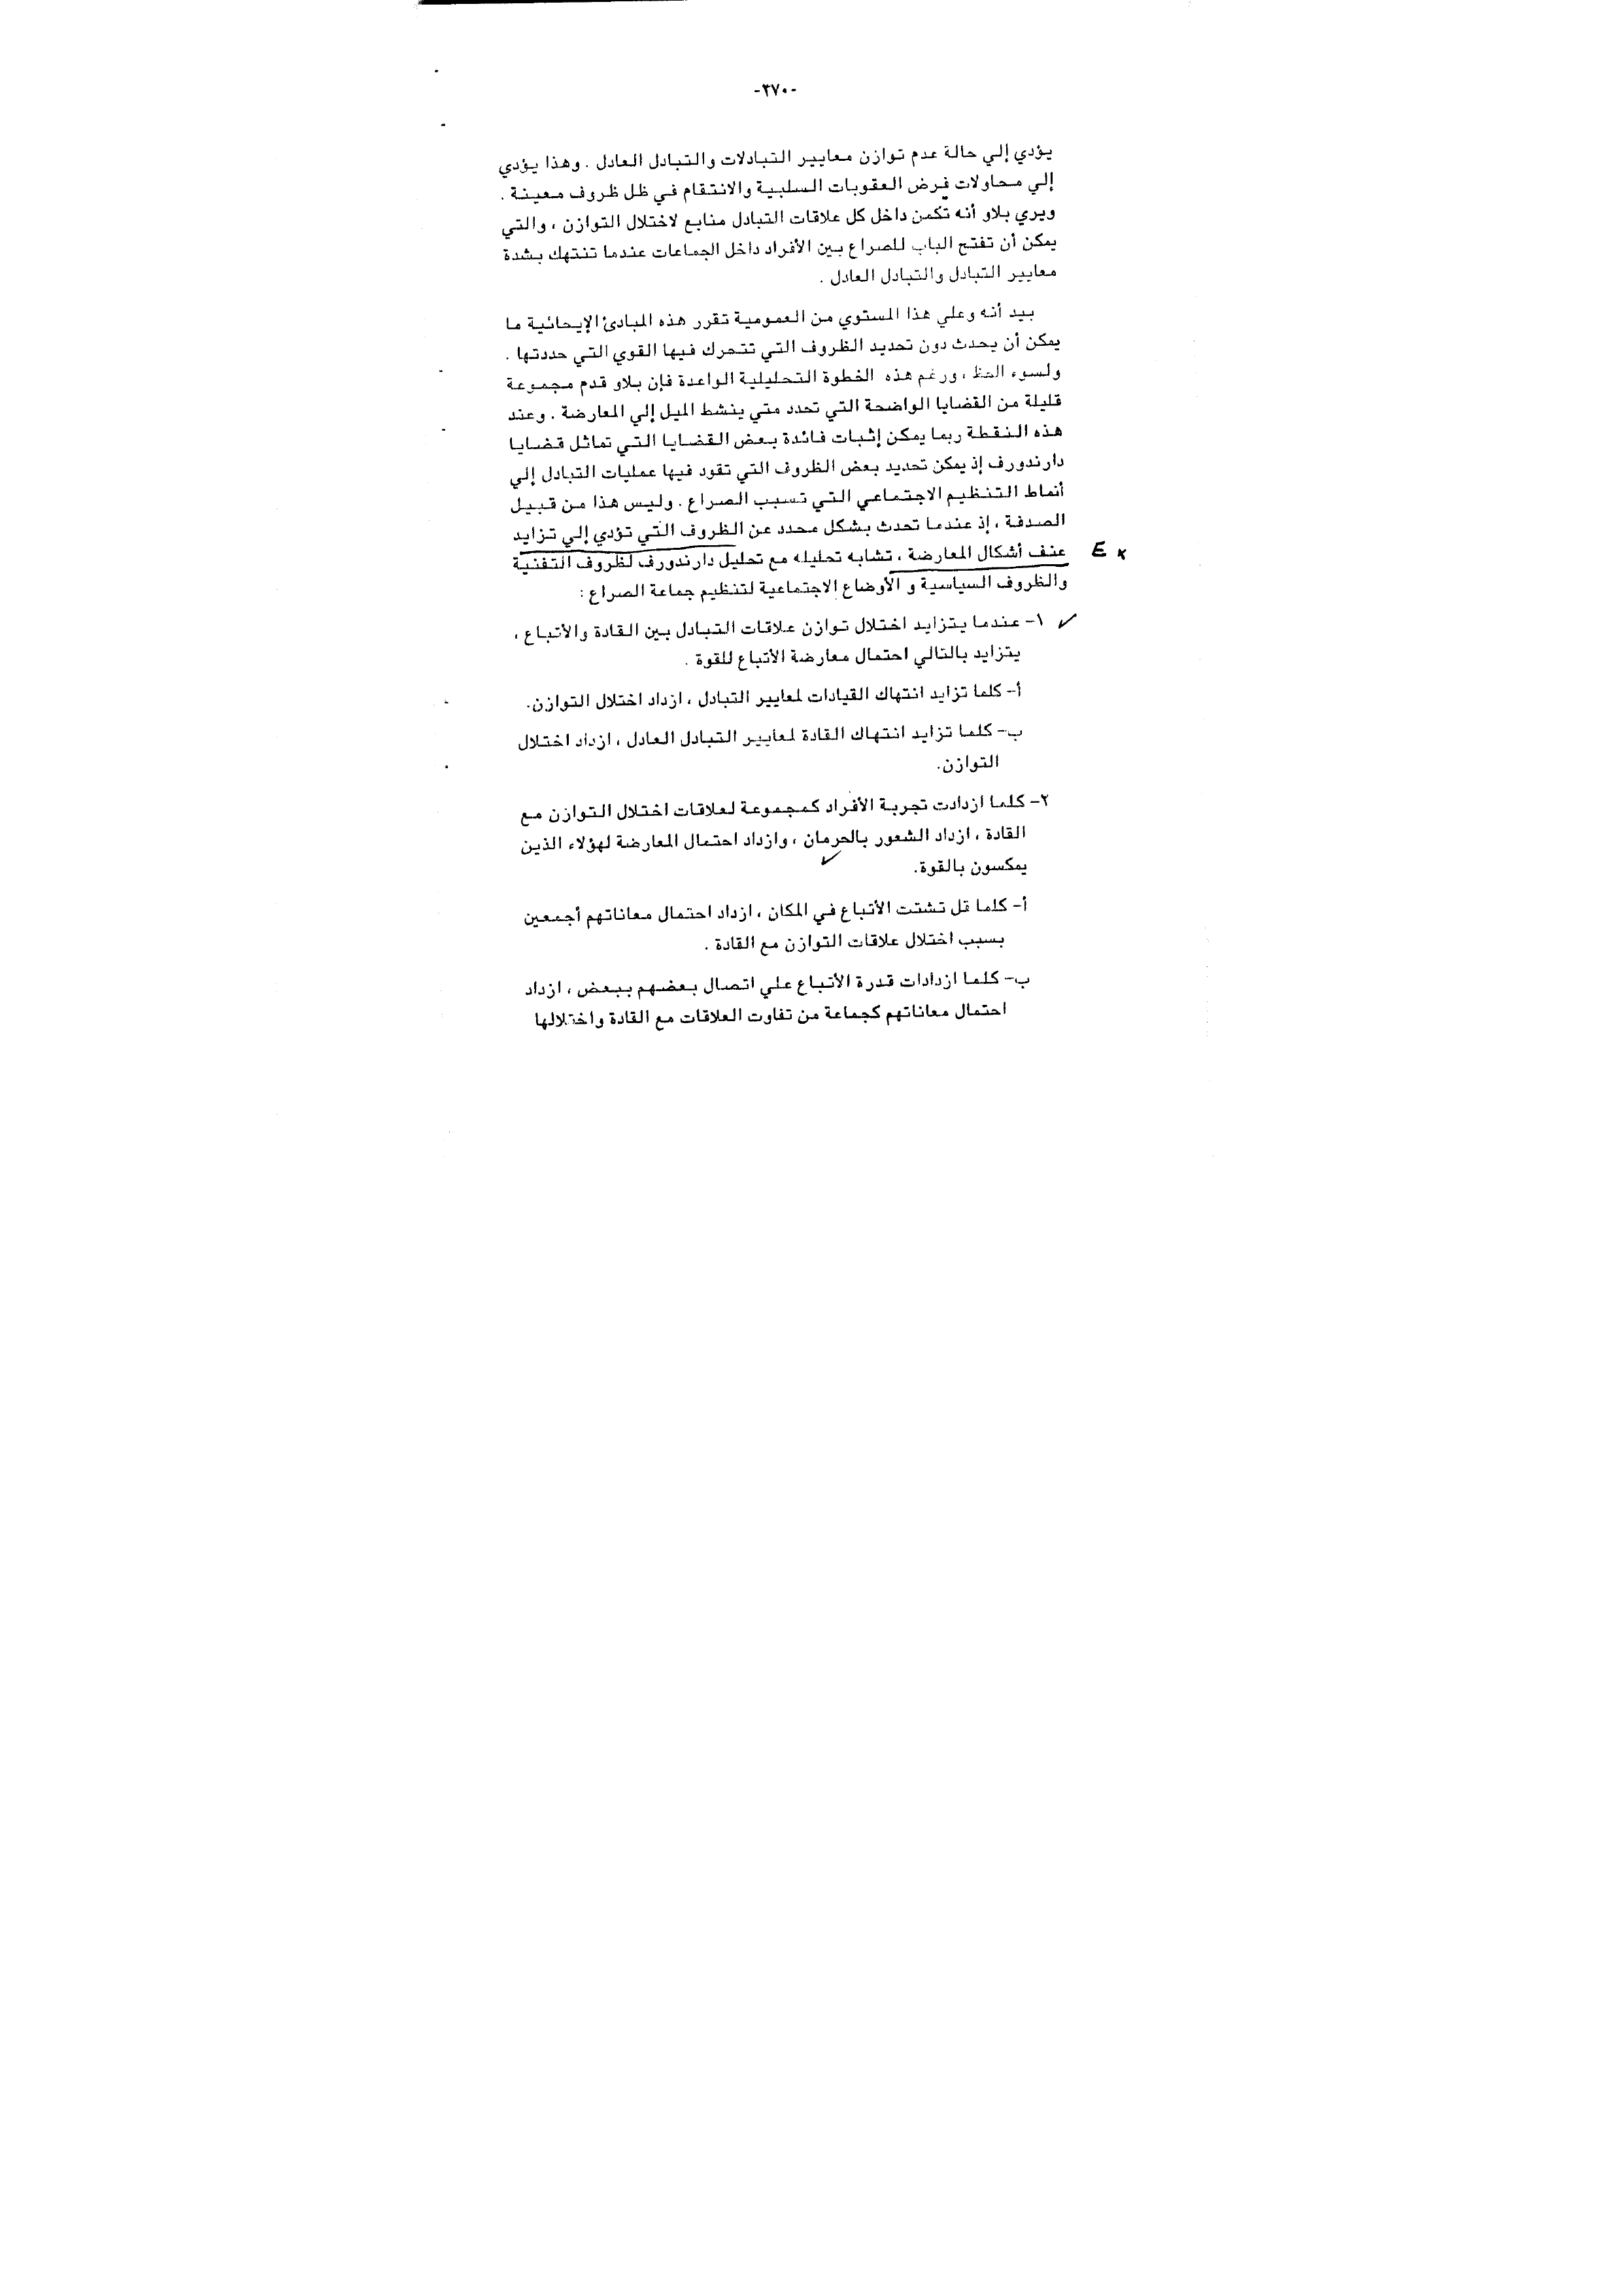 -٢٧٠-
يؤدي إلي حالة عدم توازن معايير التبادلات والتبادل العادل . وهذا يؤدي
إلي محاولات فرض العقوبات السلبية والانتقام في ظل ظروف معينة .
ويري بلاو أنه تكمن داخل كل علاقات التبادل منابع لاختلال التوازن ، والتي
يمكن أن تفتح الباب للصراع بين الأفراد داخل الجماعات عندما تنتهك بشدة
معايير التبادل والتبادل العادل .
بيد أنه وعلي هذا المستوي من العمومية تقرر هذه المبادئ الإيحائية ما
يمكن أن يحدث دون تحديد الظروف التي تتحرك فيها القوي التي حددتها .
ولسوء الحظ ، ورغم هذه الخطوة التحليلية الواعدة فإن بلاو قدم مجموعة
قليلة من القضايا الواضحة التي تحدد متي ينشط الميل إلي المعارضة . وعند
هذه النقطة ربما يمكن إثبات فائدة بعض القضايا التي تماثل قضايا
دارندورف إذ يمكن تحديد بعض الظروف التي تقود فيها عمليات التبادل إلي
أنماط التنظيم الاجتماعي التي تسبب الصراع . وليس هذا من قبيل
الصدفة ، إذ عندما تحدث بشكل محدد عن الظروف التي تؤدي إلي تزايد
عنف أشكال المعارضة ، تشابه تحليله مع تحليل دارندورف لظروف التقنية
والظروف السياسية و الأوضاع الاجتماعية لتنظيم جماعة الصراع :
١- عندما يتزايد اختلال توازن علاقات التبادل بين القادة والأتباع ،
يتزايد بالتالي احتمال معارضة الأتباع للقوة .
أ- كلما تزايد انتهاك القيادات لمعايير التبادل ، ازداد اختلال التوازن.
ب- كلما تزايد انتهاك القادة لمعايير التبادل العادل ، ازداد اختلال
التوازن.
٢- كلما ازدادت تجربة الأفراد كمجموعة لعلاقات اختلال التوازن مع
القادة ، ازداد الشعور بالحرمان ، وازداد احتمال المعارضة لهؤلاء الذين
يمكسون بالقوة.
أ- كلما قل تشتت الأتباع في المكان ، ازداد احتمال معاناتهم أجمعين
بسبب اختلال علاقات التوازن مع القادة .
ب- كلما ازدادات قدرة الأتباع علي اتصال بعضهم ببعض ، ازداد
احتمال معاناتهم كجماعة من تفاوت العلاقات مع القادة واختلالها